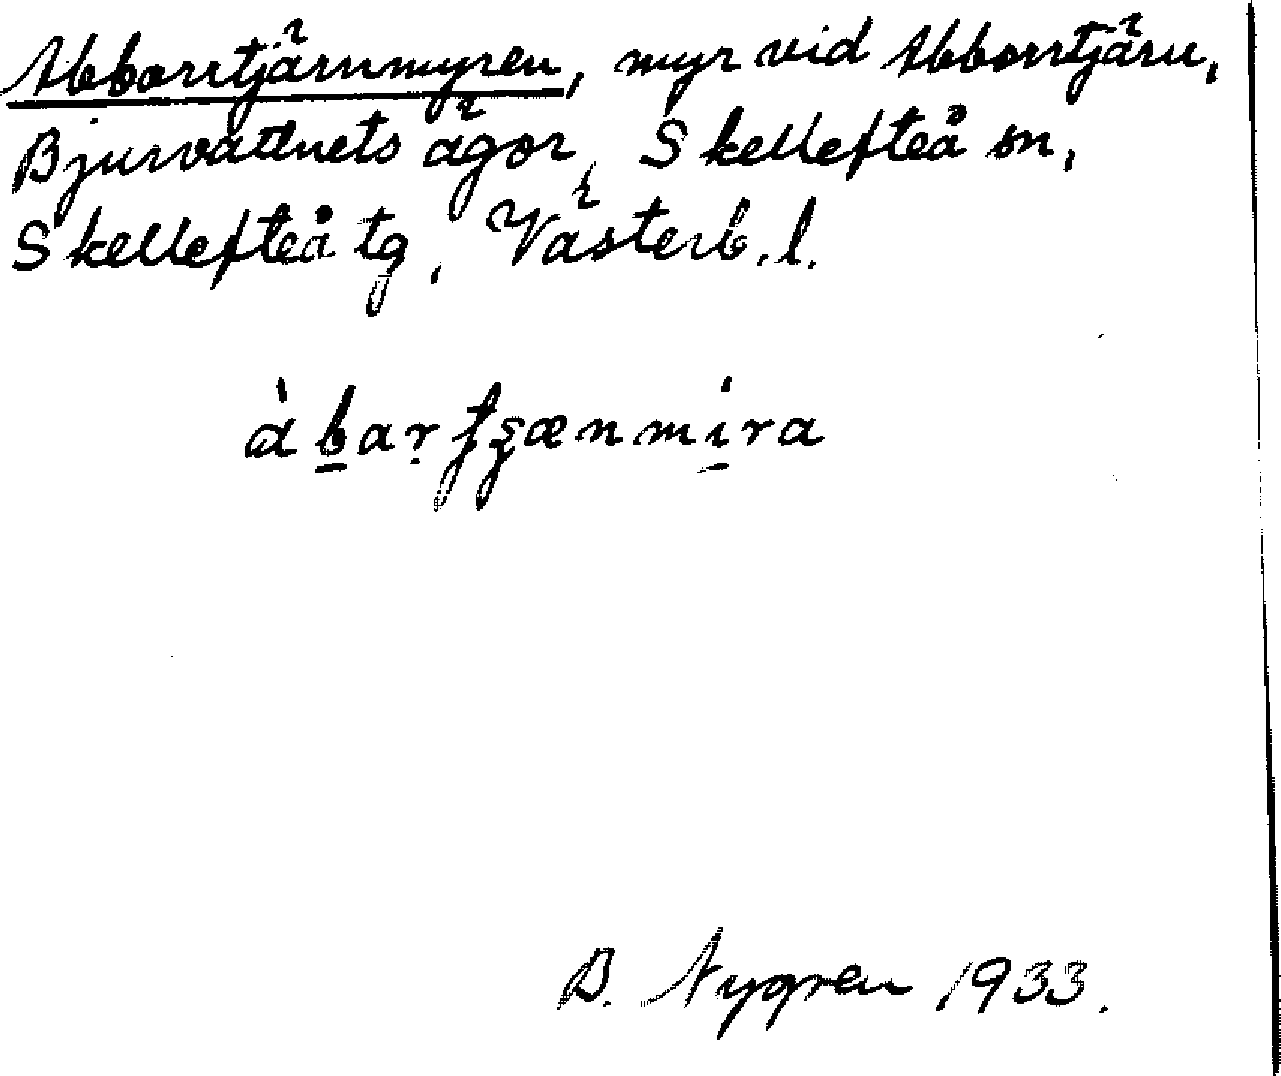 Abborrtjärnmyren, myr vid Abborrtjärn,
Bjurvattnets ägor, Skellefteå sn,
Skellefteå tg, Västerb. l.
àb̲aṛʃʒænmı̲́ra
B. Nygren 1933.